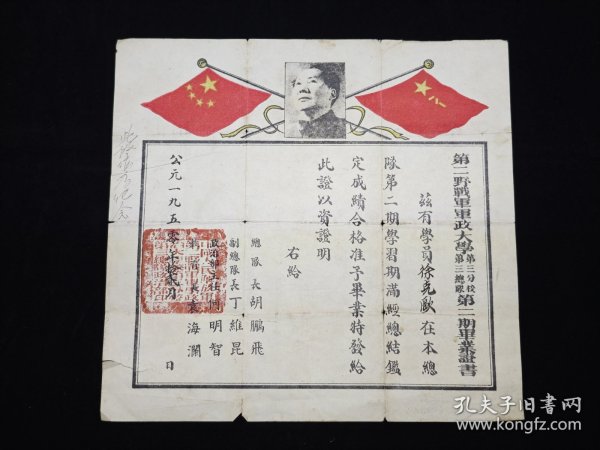 第二野戰軍軍政大學第三分校第三總隊第二期畢業證書
茲有學員徐克歐在本總
隊第二期學習期滿經總結鑑
定成績合格准予畢業特發給
此證以資證明
右給
總隊長胡鵬飛
副總隊長丁維昆
政治部主任 明智
袁海瀾
公元一九五零年 月 日
孔夫子旧书网
www.kongfz.com